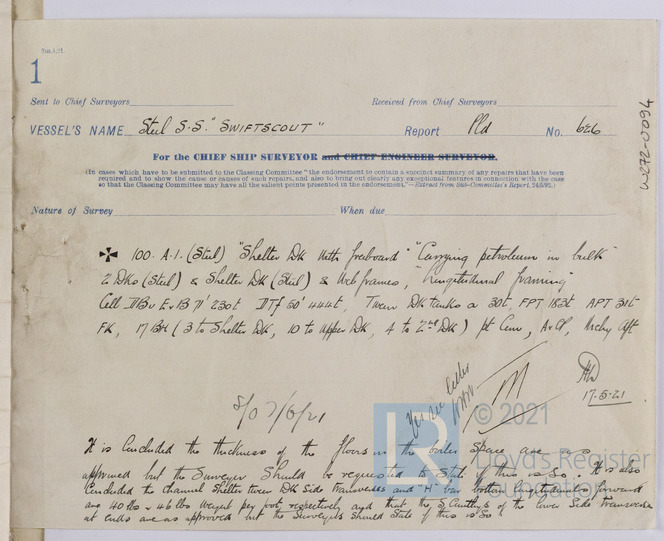 1
Sent to Chief Surveyors
Received from Chief Surveyors
VESSEL'S NAME Steel S.S. "SWIFTSCOUT" Report Pld No. 626
For the CHIEF SHIP SURVEYOR and CHIEF ENGINEER SURVEYOR.
(In cases which have to be submitted to the Classing Committee "the endorsement to contain a succinct summary of any repairs that have been
required and to show the cause or causes of such repairs, and also to bring out clearly any exceptional features in connection with the case
so that the Classing Committee may have all the salient points presented in the endorsement."—Extract from Sub-Committee's Report,
Nature of Survey When due
100. A.1. (Steel) "Shelter Dk with freeboard" "Carrying petroleum in bulk"
2 Dks (Steel) & Shelter Dk (Steel) & Web frames, "Longitudinal framing"
Cell DB 71' 230t DTf 50' 444t, Tween Dk tanks 30t, FPT 183t APT 31t
FK, 17 BH (3 to Shelter Dk, 10 to upper Dk, 4 to 2nd Dk) pt Cem, Mchy Aft
17-5-21
It is concluded the thickness of the floors in the boiler space are as
approved but the Surveyor should be requested to State if this is so. It is also
Concluded the channel Shelter tween Dk Side Transverses and "H" bar bottom longitudinals forward
are 40 lbs & 46 lbs weight per foot respectively and that the Scantlings of the tower Side Transverses
at ends are as approved but the Surveyors should State if this is So.
W272-0094
LR
© 2021
Lloyd's Register
Foundation